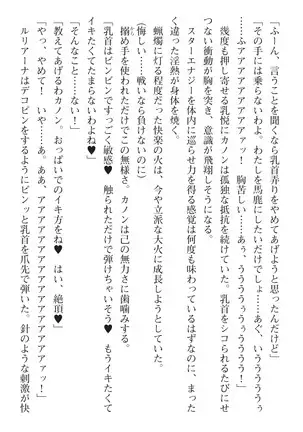 「ふーん、言うことを聞くなら乳首弄りをやめてあげようと思ったんだけど」
「その手には乗らないわよ。わたしを馬鹿にしただけでしょ……あぐ、いうううううう
……ふァアアアアアアアアー！　胸苦しい……ぁぅ、うううぅぅううぅぅうううー！」
　幾度も押し寄せる乳悦にカノンは孤独な抵抗を続けていた。乳首をシコられるたびにせ
つない衝動が胸を突き、意識が飛翔しそうになる。
　スターエナジーを体内に巡らせ力を得る感覚は何度も味わっているはずなのに、まった
く違った淫熱が身体を焼く。
　蝋燭に灯る程度だった快楽の火は、今や立派な大火に成長しようとしていた。
（悔しい……戦いなら負けないのに）
　搦め手を使われただけでこの無様さ。カノンは己の無力さに歯噛みする。
「乳首はビンビンですっごく敏感♥　触られただけで弾けちゃいそう♥　もうイキたくて
イキたくてたまらないわよね♥」
「そんなこと……ない！」
「教えてあげるわカノン。おっぱいでのイキ方をね♥　はい、絶頂♥」
「や、やめて！　いや……あ。ああ、アアアアアアアアアアアアアアアアアァァッ！」
　ルリアーナはデコピンをするようにピンッと乳首を爪先で弾いた。針のような刺激が快